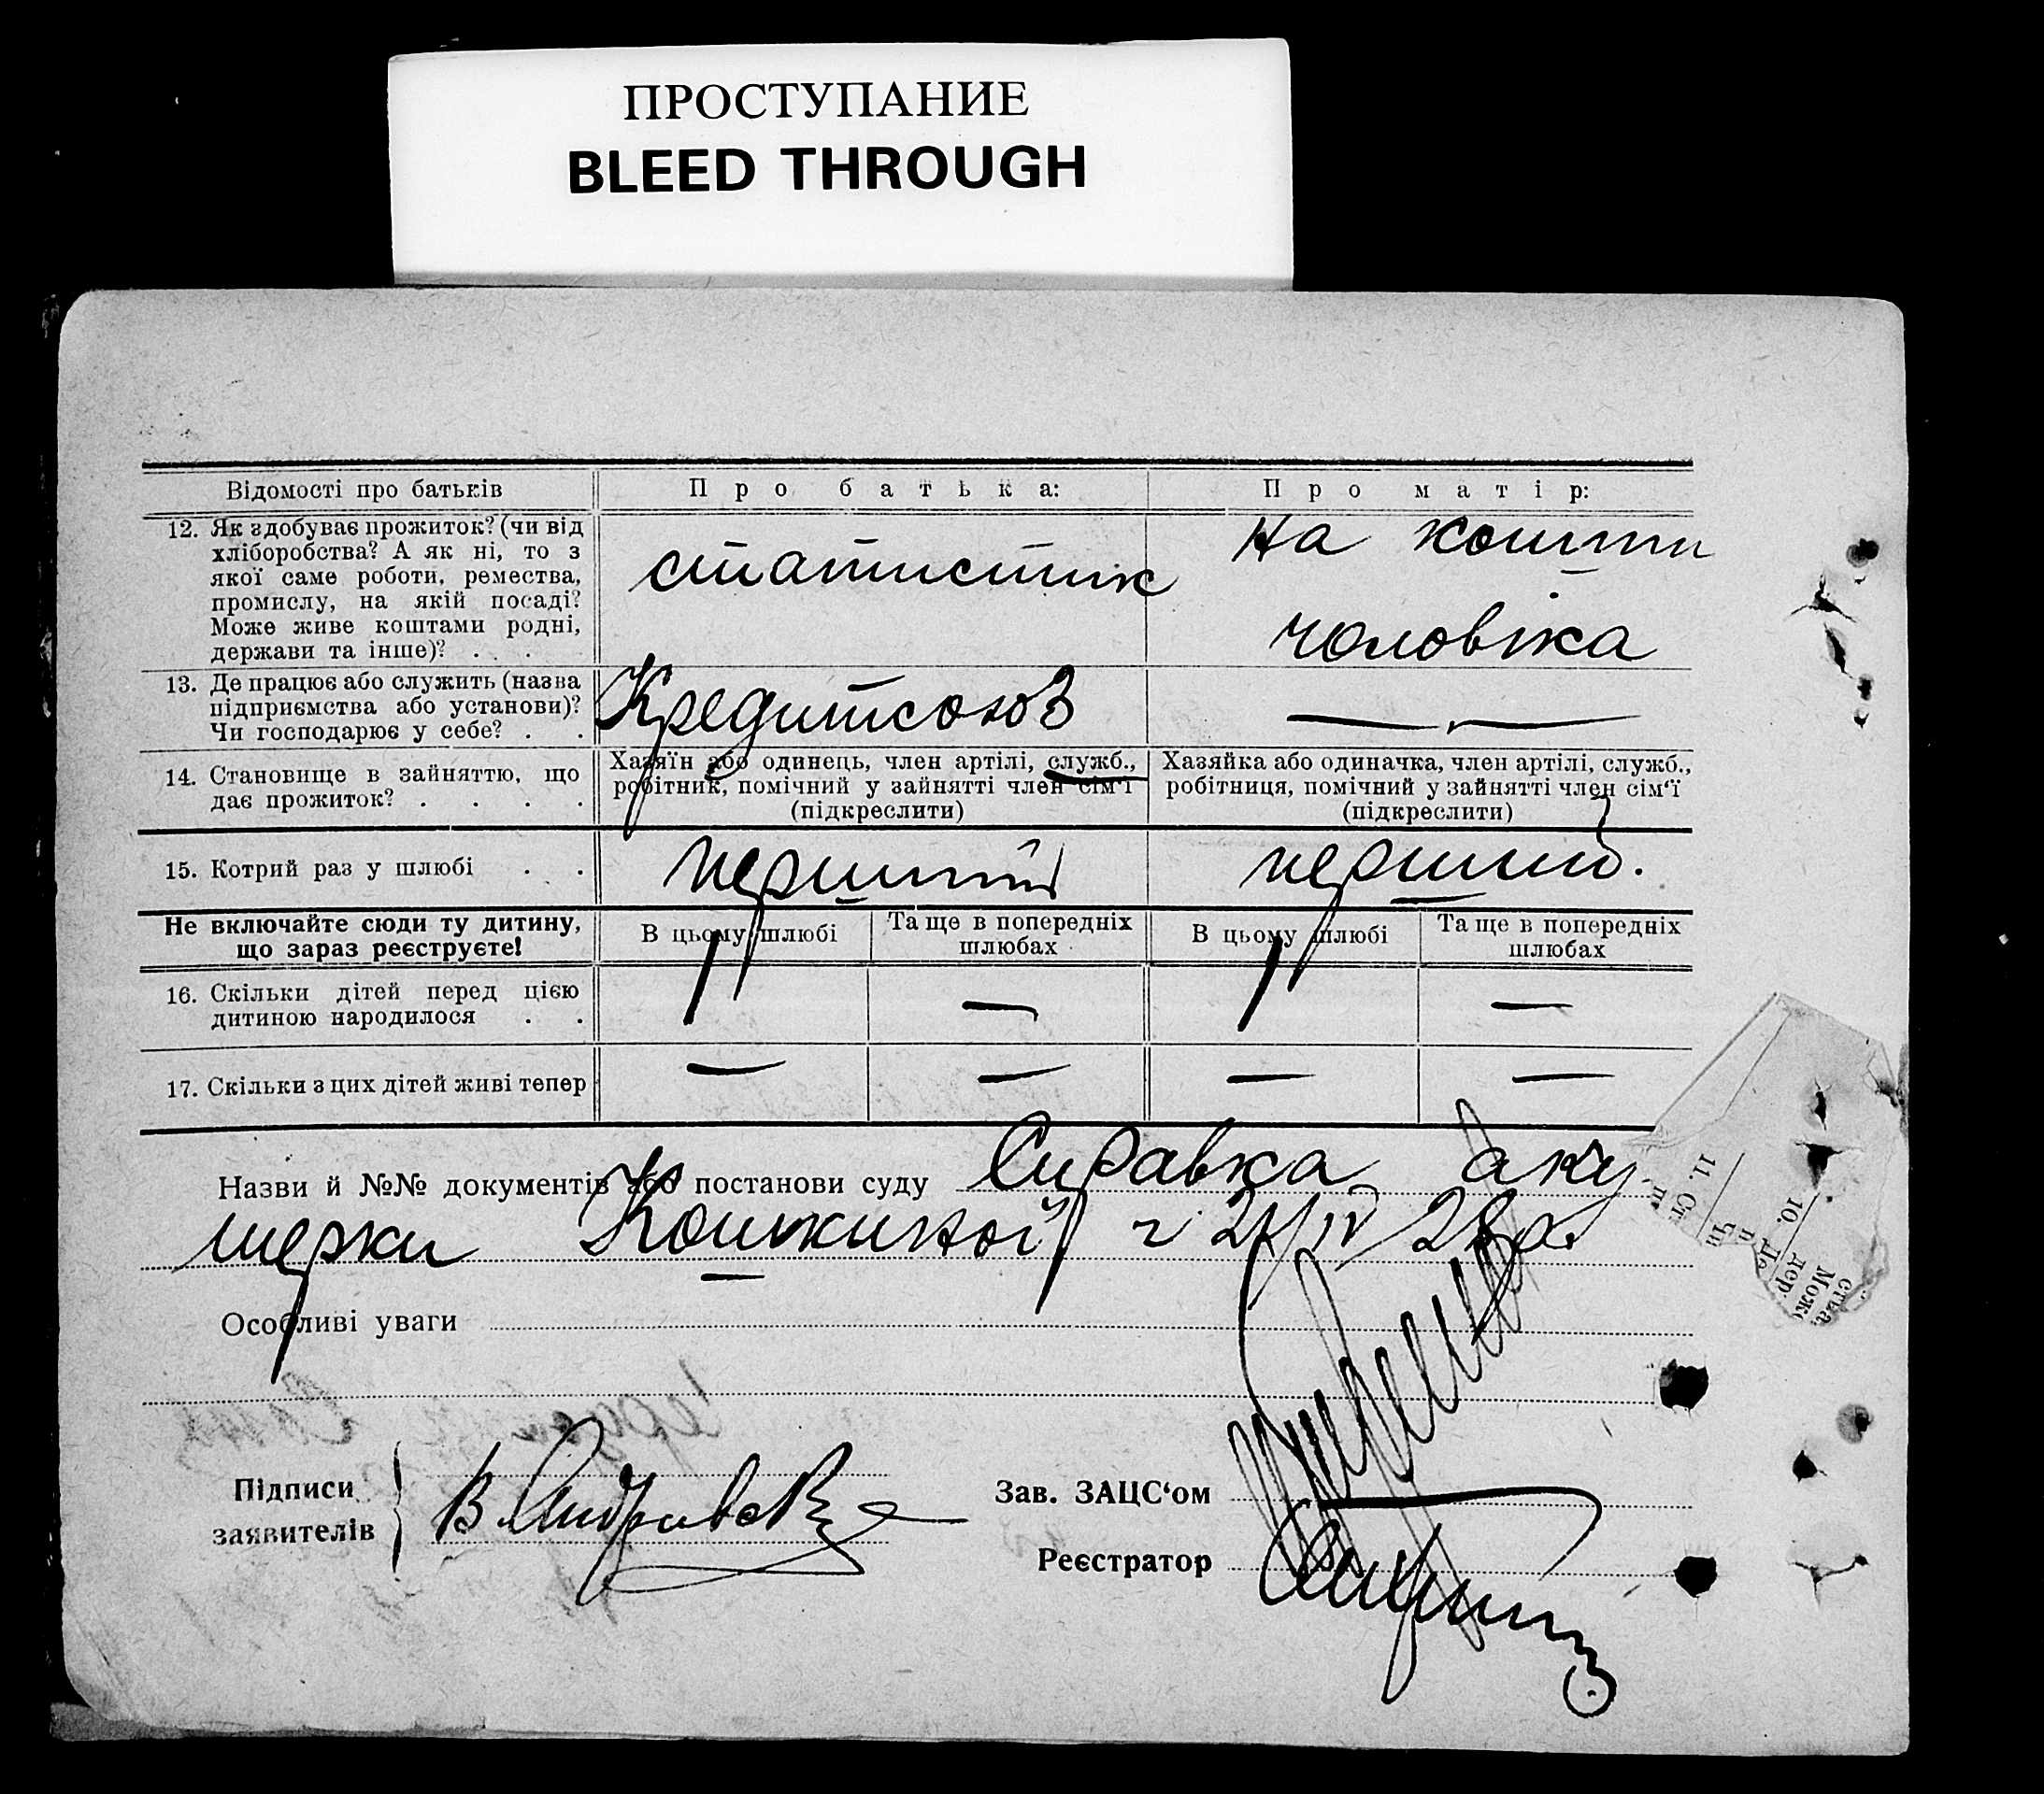 ПРОСТУПАНИЕ
BLEED THROUGH
Відомості про батьків
Про батька:
Про матір:
12. Як здобуває прожиток? (чи від
хліборобства? А як ні, то з
якої саме роботи, ремества,
промислу, на якій посаді?
Може живе коштами родні,
держави та інше)? . . .
статистик
на кошти
чоловіка
13. Де працює або служить (назва
підприємства або установи)?
Чи господарює у себе? . .
Кредитсоюз
—
14. Становище в зайняттю, що
дає прожиток? . . . .
Хазяїн або одинець, член артілі, служб.,
робітник, помічний у зайнятті член сім'ї
(підкреслити)
Хазяйка або одиначка, член артілі, служб.,
робітниця, помічний у зайнятті член сім'ї
(підкреслити)
15. Котрий раз у шлюбі . .
перший
перший.
Не включайте сюди ту дитину,
що зараз реєструєте!
В цьому шлюбі
Та ще в попередніх
шлюбах
В цьому шлюбі
Та ще в попередніх
шлюбах
16. Скільки дітей перед цією
дитиною народилося . .
1
—
1
—
17. Скільки з цих дітей живі тепер
—
—
—
—
Назви й №№ документів або постанови суду Справка аку
шерки Кошкиной
Особливі уваги
Підписи
заявителів
Зав. ЗАЦС'ом
Реєстратор
11. Ст
10. Де
дер
Може